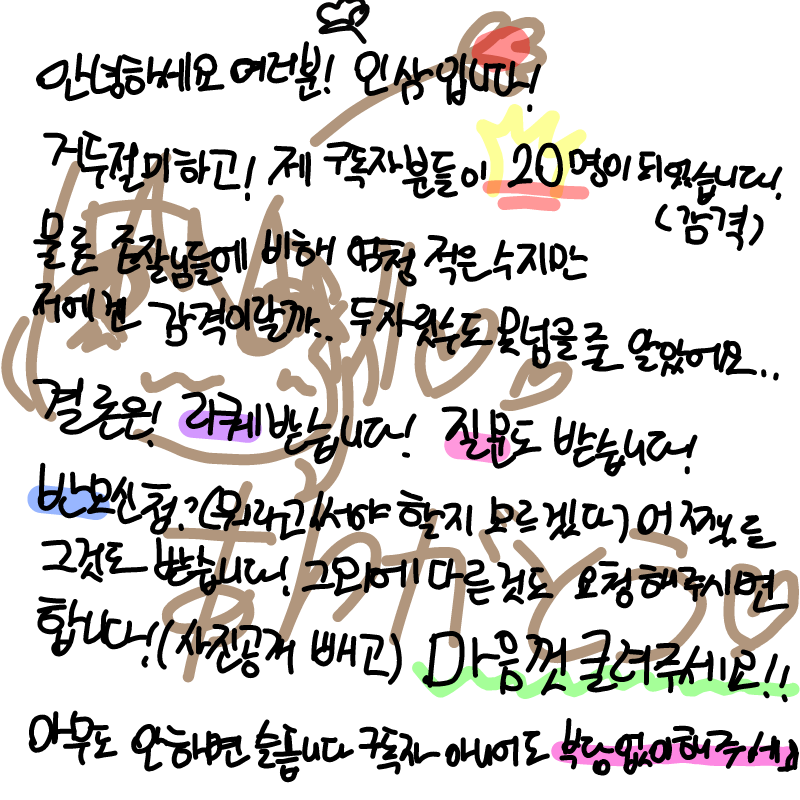 안녕하세요 여러분! 인삼입니다!
거두절미하고! 제 구독자분들이 20명이 되었습니다!
(감격)
물론 존잘님들에 비해 엄청 적은 수지만
저에겐 감격이랄까.. 두자릿수도 못넘을줄 알았어요..
결론은! 리퀘받습니다! 질문도 받습니다!
반모신청?(뭐라고써야 할지 모르겠다) 어쨌든
그것도 받습니다! 그외에 다른것도 요청해주시면
합니다!(사진공개 빼고) 마음껏 클려주세요!!
아무도 안하면 슬픔니다 구독자 아니어도 부담없이해주세요
ありがとう